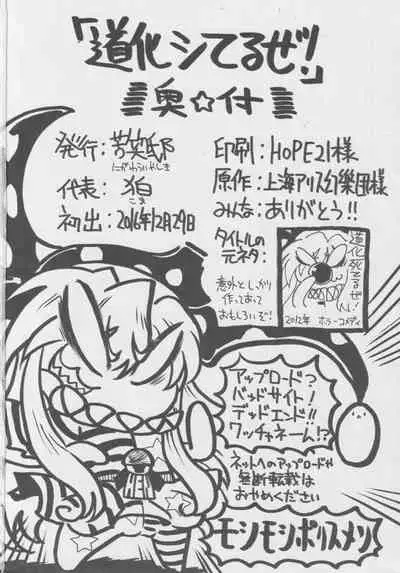 「道化シてるぜ!」
奥☆付
発行:苦笑邸
にがわらいやしき
代表:狛
こま
初出:2016年12月29日
印刷:HOPE21様
原作:上海アリス幻樂団様
みんな:ありがとう!!
タイトルの
元ネタ
意外としっかり
作ってあって
おもしろいぞ!
道化死てるぜ!
2012年 ホラーコメディ
アップロード?
バッドサイト!
デッドエンド!!
ワッチャネーム!?
ネットへのアップロードや
無断転載は
おやめください
モシモシポリスメン